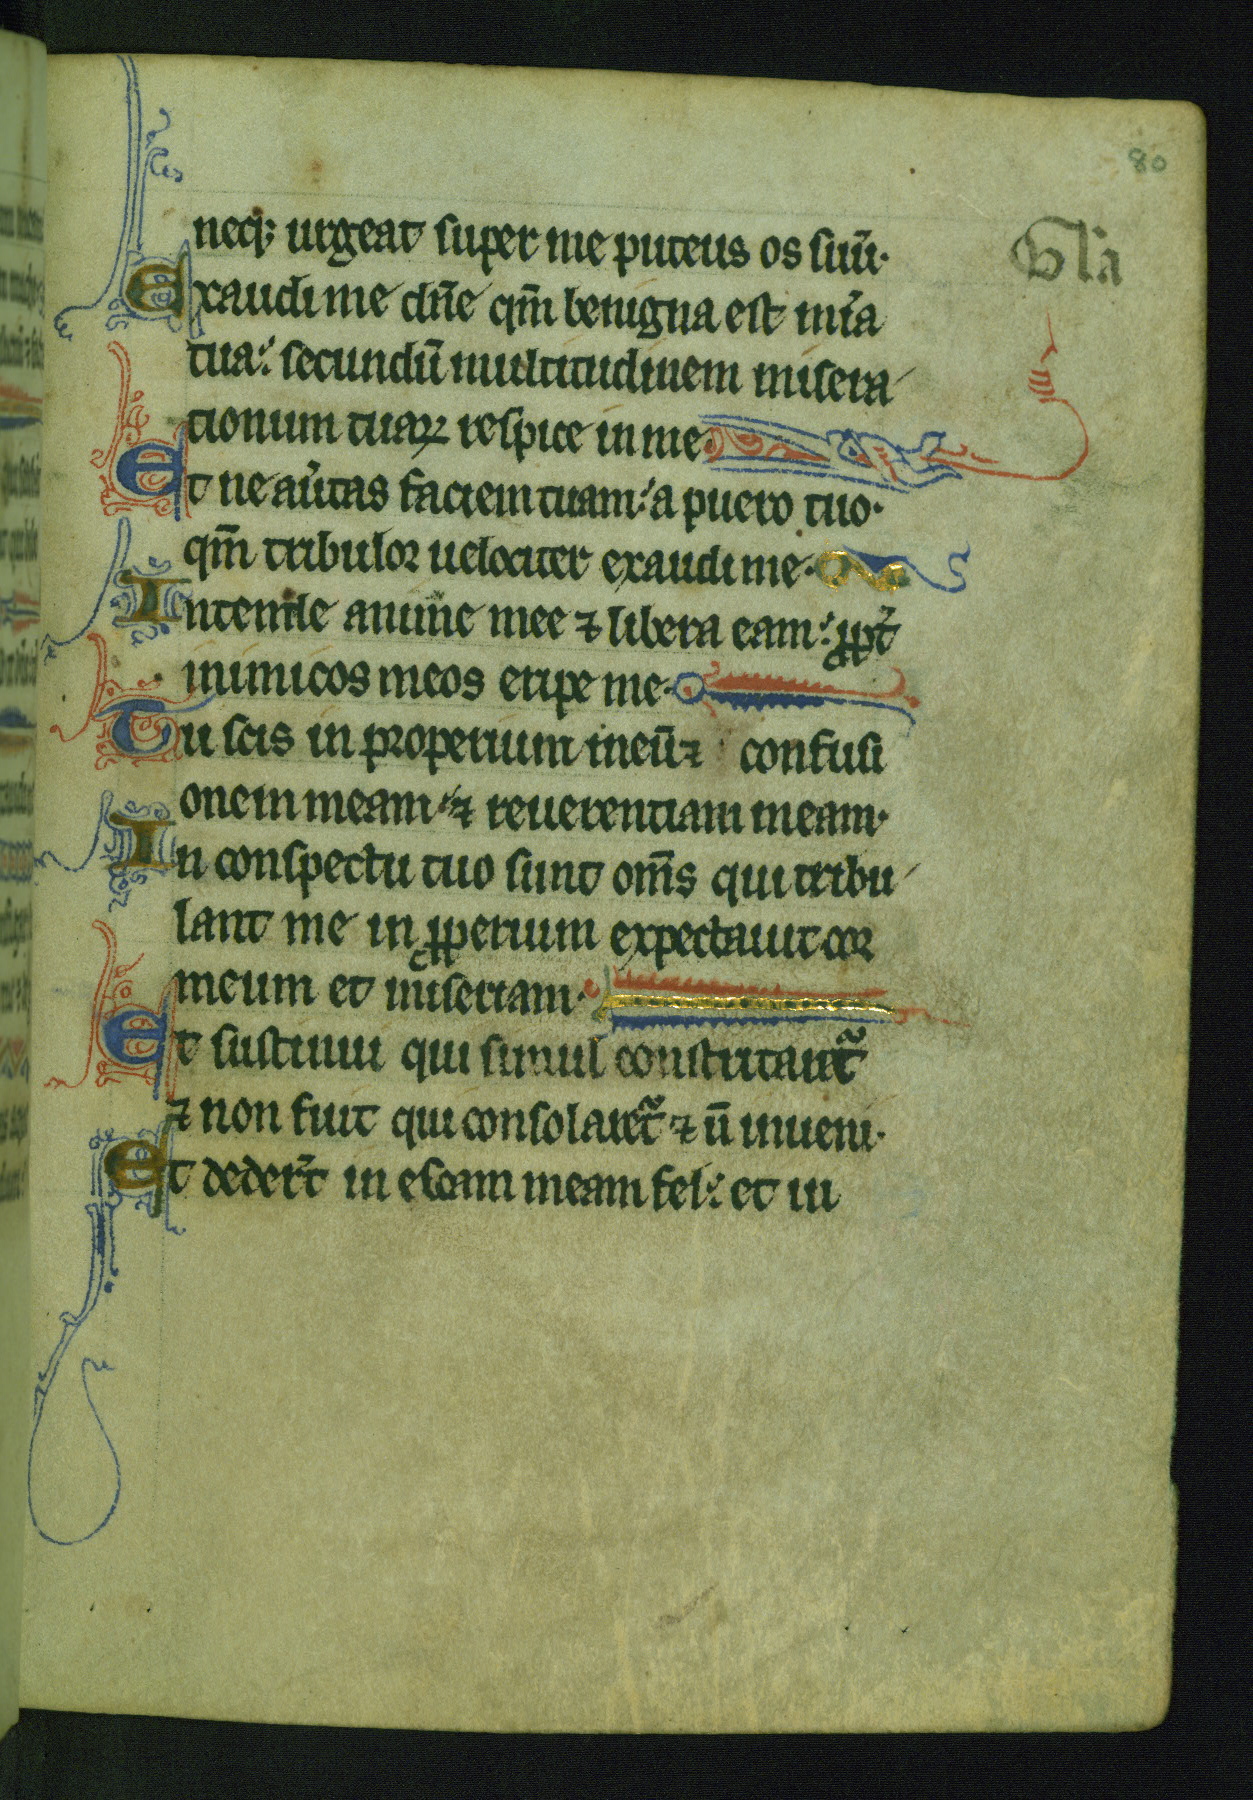 80
neq; urgeat super me puteus os suū·
Gl̄a
Exaudi me dn̄e qm̄ benigna est mīa
tua: secundū multitudinem misera
tionum tuaꝝ respice in me·
Et ne aūtas faciem tuam: a puero tuo·
qm̄ tribulor uelociter exaudi me·
Intende anime mee ⁊ libera eam: ꝓpt̄
inimicos meos eripe me·
Tu scis inproperium meū ⁊ confusi
onem meam: ⁊ reuerentiam meam·
In conspectu tuo sunt om̄s qui tribu
lant me inꝓperium expectauit cor
meum et miseriam·
Et sustinui qui simul constritaret᷑
⁊ non fuit qui consolaret᷑ ⁊ n̄ inueni·
Et dedert̄ in escam meam fel: et in